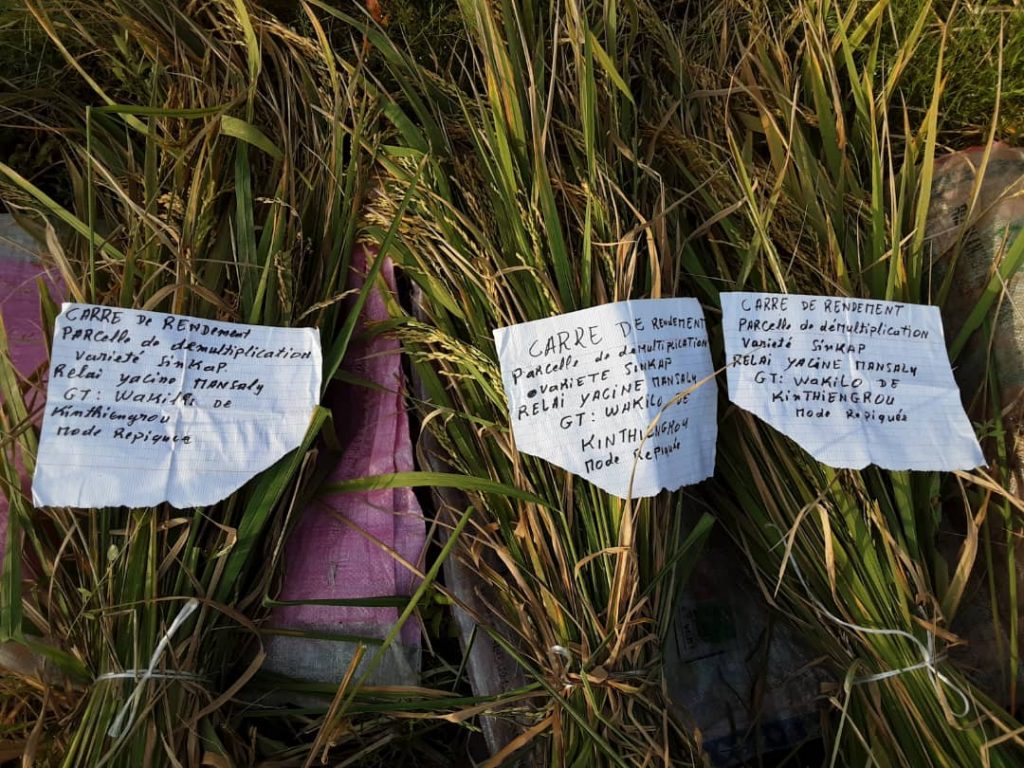 CARRE De RENDement
PARCelle de démultiplication
Varieté SinKaP
Relai yacine MANSALY
GT: Wakilo de
Kinthiengrou
Mode Repiquée
CARRE DE RENDEMENT
PARCelle de démultiplication
VARIETE SinKAP
RELAI YACINE MANSALY
GT: WAKILO DE
KINTHIENGROU
Mode Repiquée
CARRE DE RENDEMENT
PARCelle de démultiplication
Varieté SinKAP
RELAI YACINE MANSALY
GT: WAKILO DE
KINTHIENGROU
Mode Repiquée